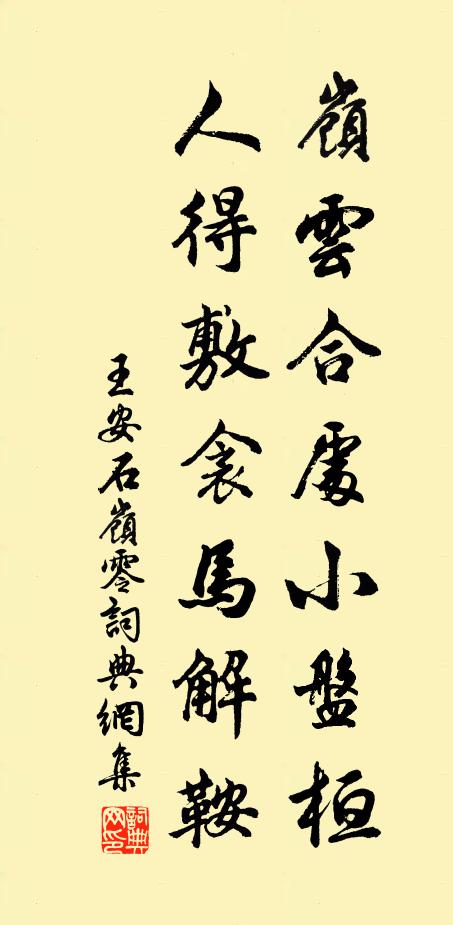 嶺雲合處小盤桓
人得敷衾馬解鞍
王安石嶺雲詞典網集
詞典
网印